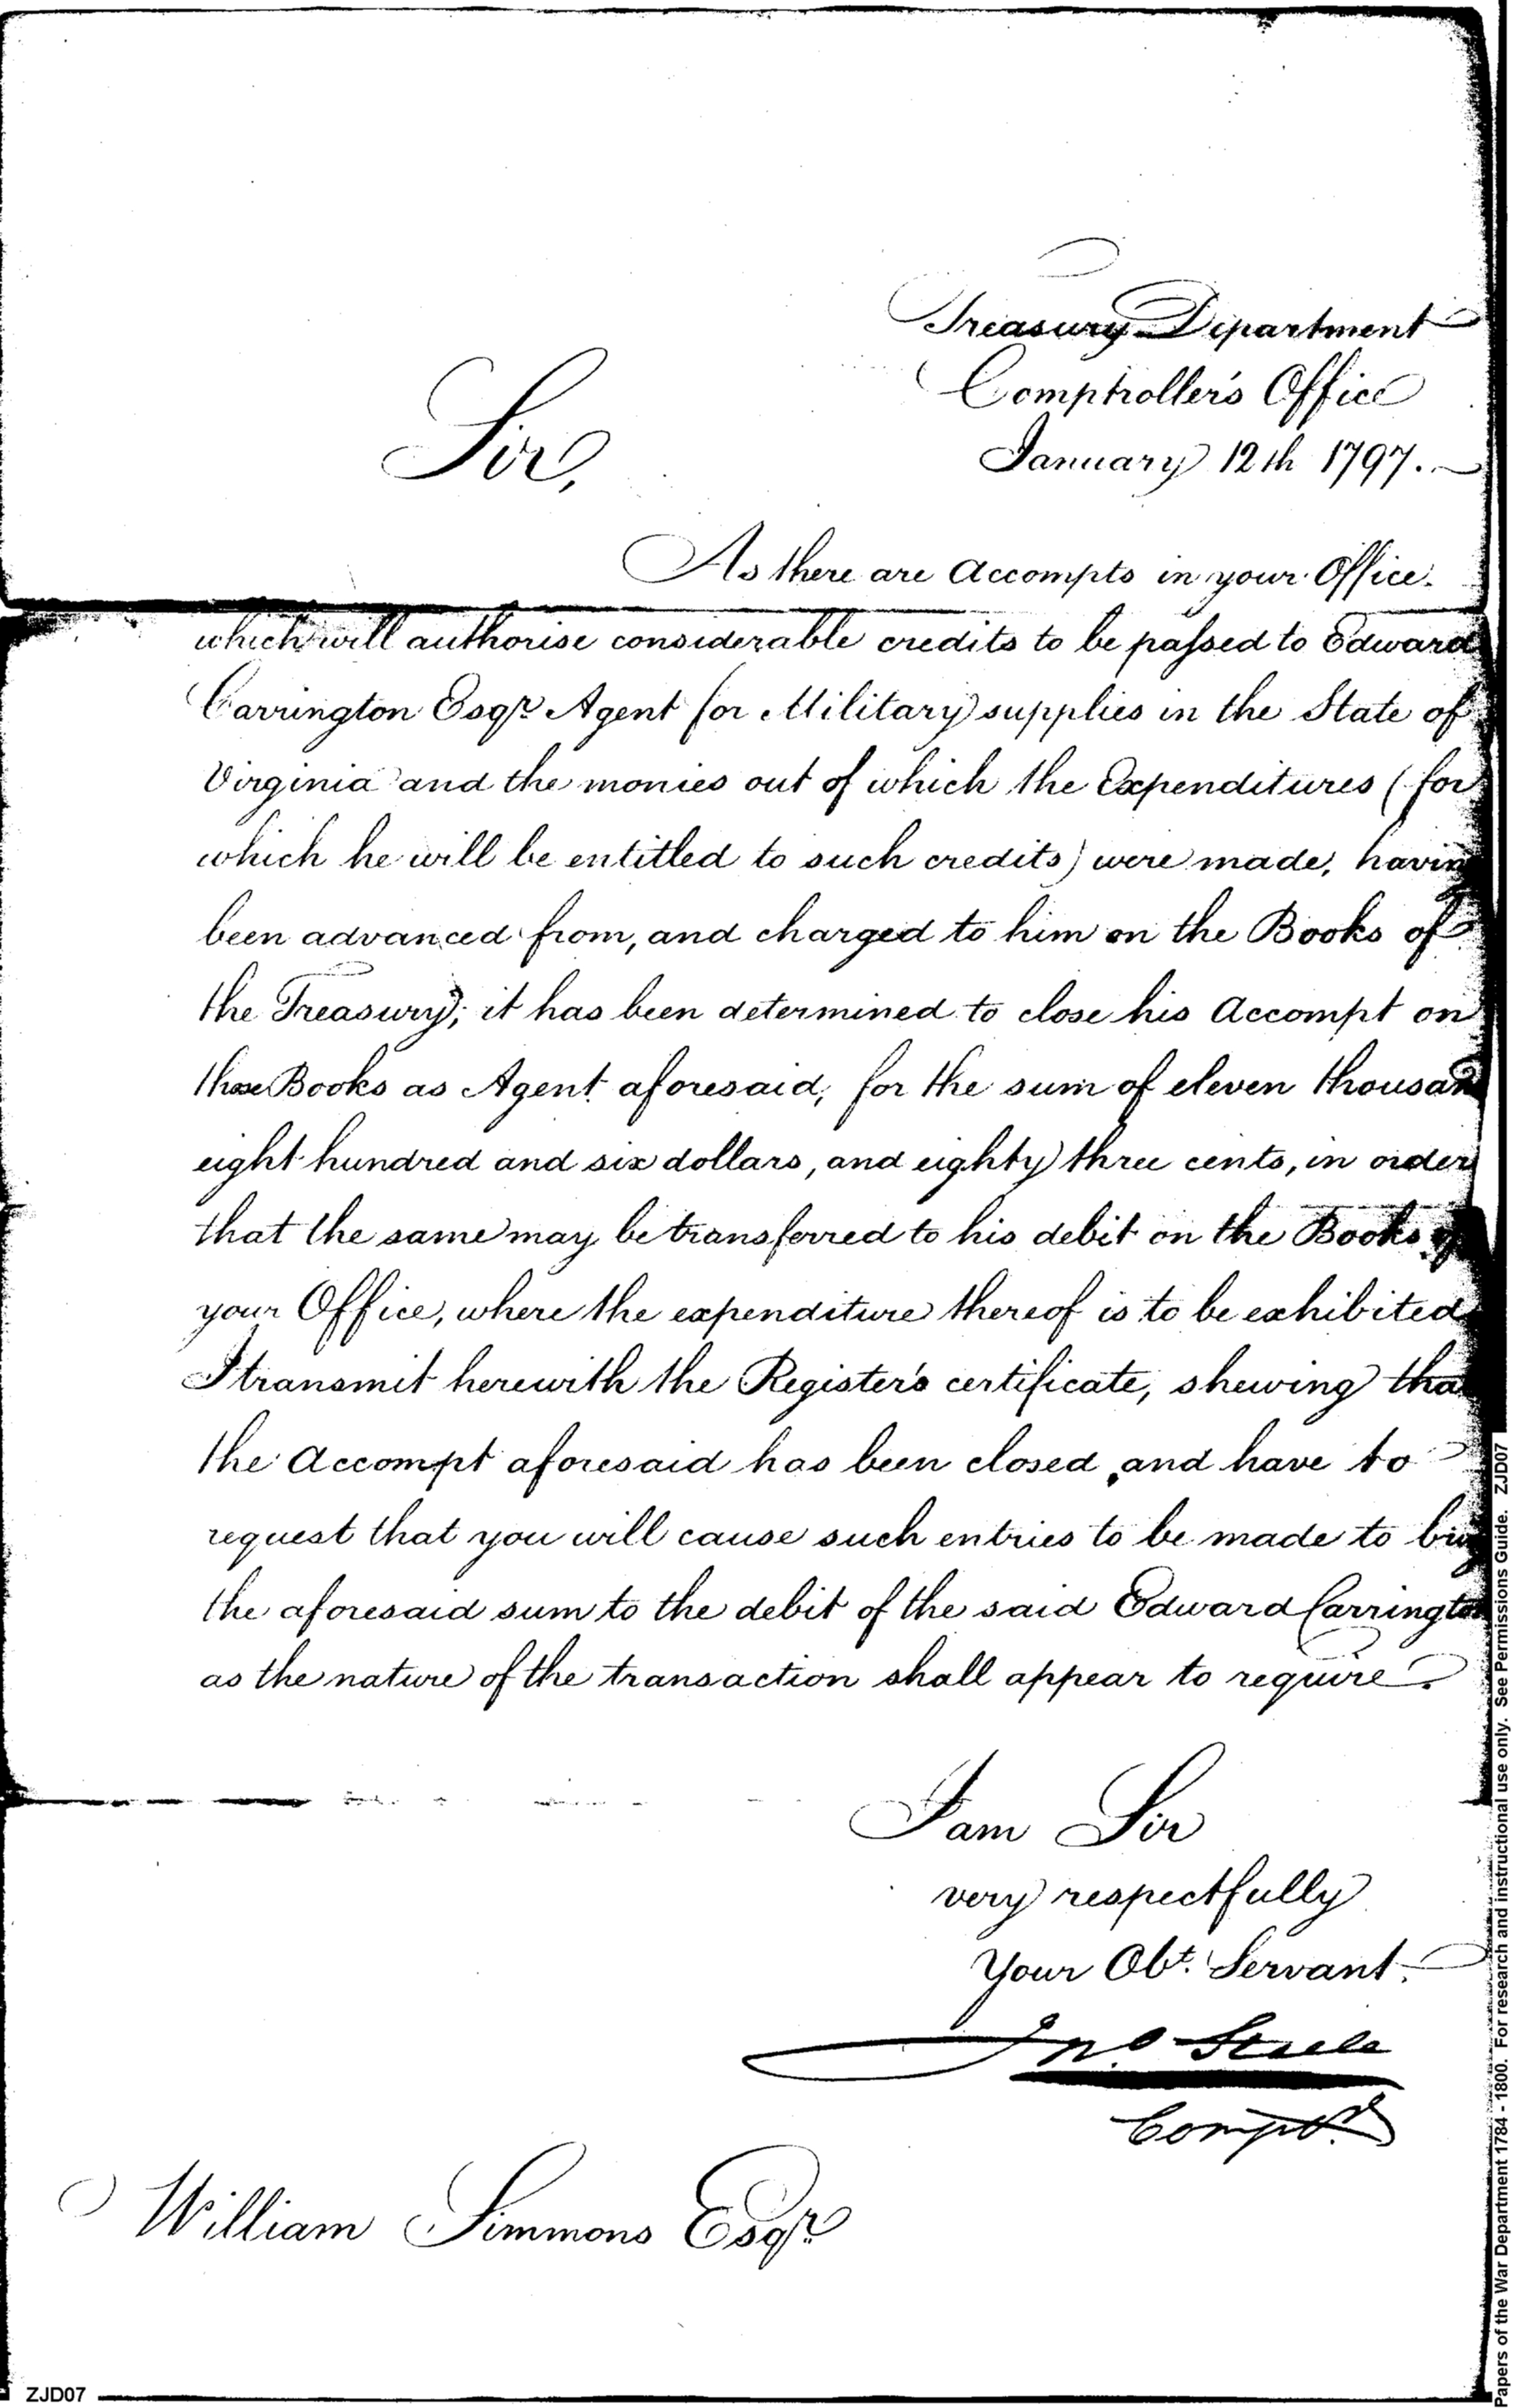 Treasury Department
Comptroller's Office
January 12th 1797.
Sir,
As there are Accompts in your Office
which will authorise considerable credits to be passed to Edward
Carrington Esqr. Agent for Military supplies in the State of
Virginia and the monies out of which the Expenditures (for
which he will be entitled to such credits) were made, having
been advanced from, and charged to him on the Books of
the Treasury; it has been determined to close his Accompt on
those Books as Agent aforesaid, for the sum of eleven thousand
eight hundred and six dollars, and eighty three cents, in order
that the same may be transferred to his debit on the Books of
your Office, where the expenditure thereof is to be exhibited
I transmit herewith the Register's certificate, shewing tha
the Accompt aforesaid has been closed, and have to
request that you will cause such entries to be made to
the aforesaid sum to the debit of the said Edward Carrington
as the nature of the transaction shall appear to require.
I am Sir
very respectfully
Your Obt. Servant.
Jno Steele
Comptr.
William Simmons Esqr.
ZJD07
Papers of the War Department 1784 - 1800. For research and instructional use only. See Permissions Guide. ZJD07